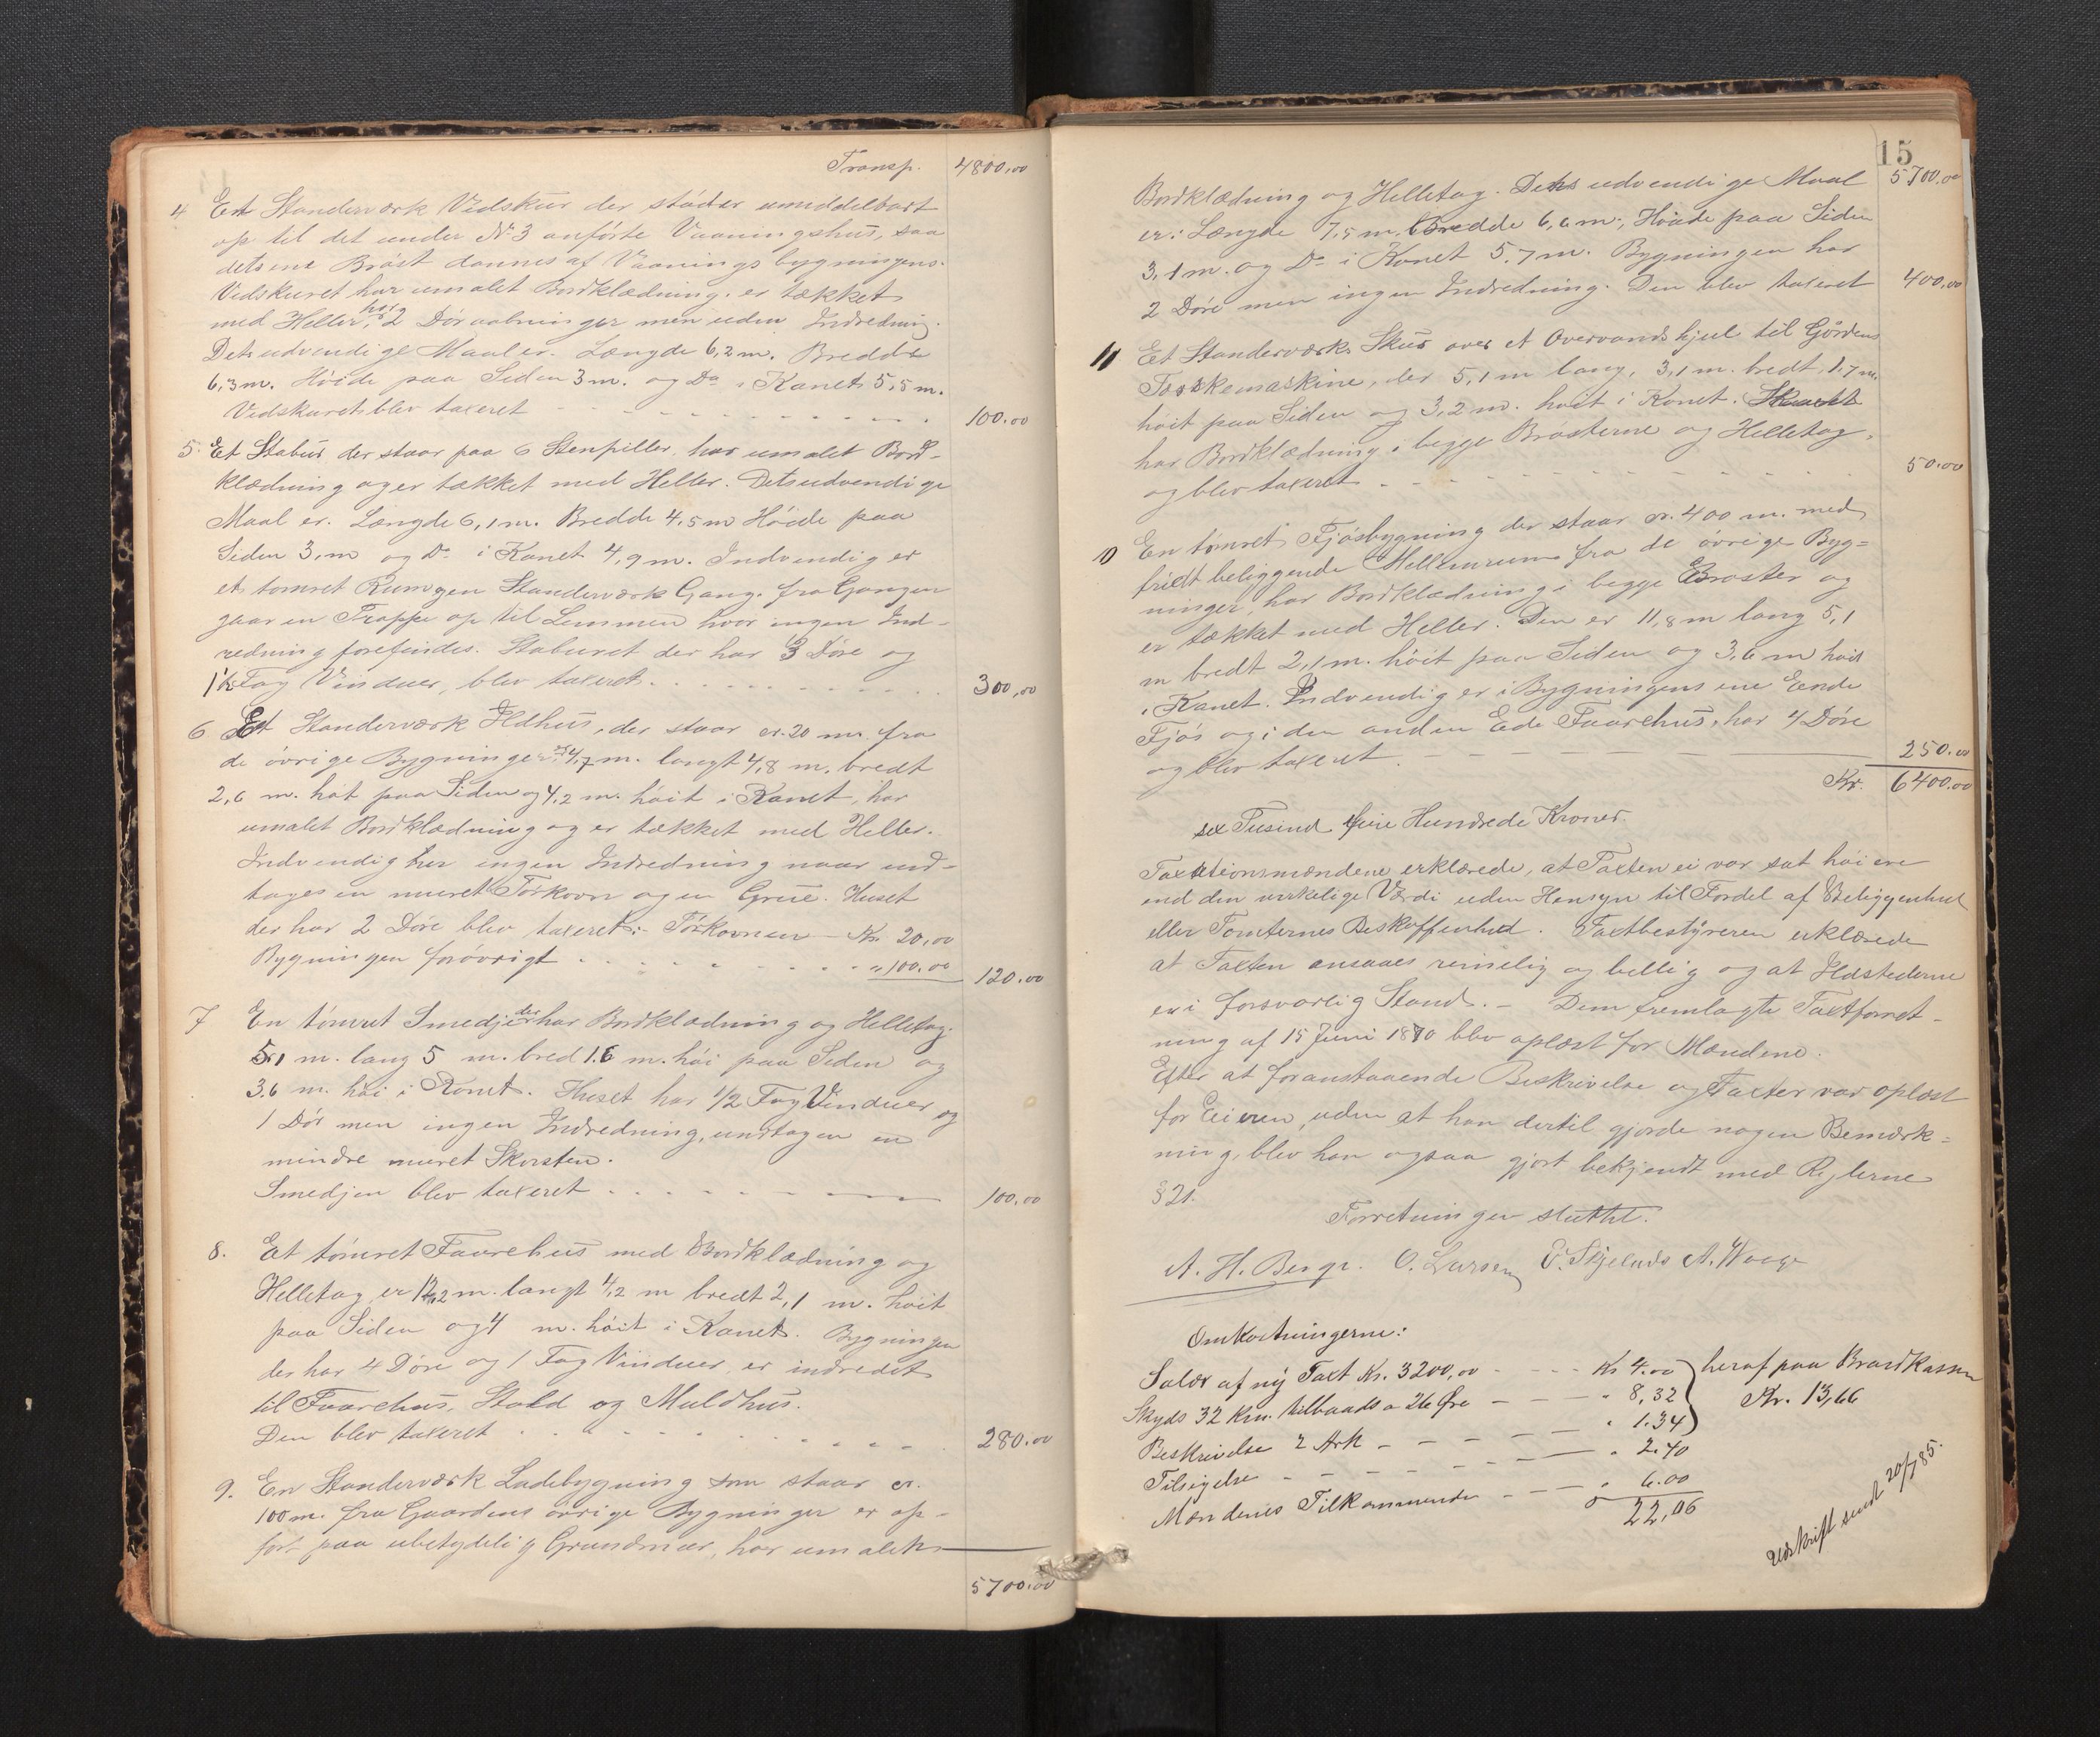 Transp. 4800,00
4 Et Standerværk Vedskur der støder umiddelbart
op til det under No 3 anførte Vaaningshus, saa
dets ene Brøst dannes af Vaaningsbygningens.
Vedskuret har umalet Bordklædning, er tækket
med Heller, har 2 Døraabninger men uden Indredning.
Dets udvendige Maal er. Længde 6,2 m. Bredde
6,3 m. Høide paa Siden 3 m. og Do i Kanet 5,5 m.
Vedskuret blev taxeret - - - 100.00
5. Et Stabur der staar paa 6 Stenpiller, har umalet Bord-
klædning og er tækket med Heller. Dets udvendige
Maal er. Længde 6,1 m. Bredde 4,5 m Høide paa
Siden 3, m og Do i Kanet 4,9 m. Indvendig er
et tømret Rum og en Standerværk Gang. fra Gangen
gaar en Trappe op til Lemmen hvor ingen Ind-
redning forefindes. Staburet der har 3 Døre og
1 1/2 Fag Vinduer, blev taxeret . . . 300,00
6 Et Standerværk Ildhus, der staar cr. 20 m. fra
de øvrige Bygninger er 4,7 m. langt 4,8 m. bredt
2,6 m. høit paa Siden og 4,2 m. høit i Kanet, har
umalet Bordklædning og er tækket med Heller.
Indvendig her ingen Indredning naar und-
tages en muret Tørkovn og en Grue. Huset
der har 2 Døre blev taxeret:- Tørkovnen - Kr. 20,00
Bygningen forøvrigt . . . " 100.00 120.00
7 En tømret Smedje der har Bordklædning og Helletag.
5,1 m. lang 5 m. bred 1.6 m. høi paa Siden og
3.6 m. høi i Kanet. Huset har 1/2 Fag Vinduer og
1 Dør men ingen Indredning, undtagen en
mindre muret Skorsten.
Smedjen blev taxeret . . . 100.00
8. Et tømret Faarehus med Bordklædning og
Helletag er 12,2 m. langt 4,2 m bredt 2,1 m. høit
paa Siden og 4 m. høit i Kanet. Bygningen
der har 4 Døre og 1 Fag Vinduer, er indredet
til Faarehus, Stald og Muldhus.
Den blev taxeret . . . 280.00
9. En Standerværk Ladebygning som staar cr.
100 m. fra Gaardens øvrige Bygninger er op-
ført paa ubetydelig Grundmur, har umalet
5700.00
15
5700.00
Bordklædning og Helletag. Dens udvendige Maal
er: Længde 7,5 m. Bredde 6,6 m; Høide paa Siden
3,1 m. og Do i Kanet 5.7 m. Bygningen har
2 Døre men ingen Indredning. Den blev taxeret 400.00
11 Et Standerværks Skur over et Overvandshjul til Gårdens
Tærskemaskine, er 5,1 m lang, 3,1 m. bredt, 1.7 m.
høit paa Siden og 3,2 m. høit i Kanet. Skuret
har Bordklædning i begge Brøsterne og Helletag,
og blev taxeret . . . 50.00
10 En tømret Fjøsbygning der staar cr. 400 m. med
fridt beliggende Mellemrum fra de øvrige Byg=
ninger, har Bordklædning i begge Brøster og
er tækket med Heller. Den er 11,8 m lang 5,1
m bredt 2,1 m. høit paa Siden og 3,6 m høit
i Kanet. Indvendig er i Bygningens ene Ende
Fjøs og i den anden Ede Faarehus, har 4 Døre
og blev taxeret. 250.00
Kr. 6400.00
sex Tusind fire Hundrede Kroner.
Taxtationsmændene erklærede, at Taxten ei var sat høiere
end den virkelige Værdi uden Hensyn til Fordel af Beliggenhed
eller Tomternes Beskaffenhed. Taxtbestyreren erklærede
at Taxten ansaaes rimelig og billig og at Ildstederne
er i forsvarlig Stand. - Den fremlagte Taxtforret-
ning af 15 Juni 1870 blev oplæst for Mændene.
Efter at foranstaaende Beskrivelse og Taxter var oplæst
for Eieren, uden at han dertil gjorde nogen Bemærk=
ning, blev han ogsaa gjort bekjendt med Reglerne
§ 21.
Forretningen sluttet.
A. H. Berge. O. Larsen A. Waage
Omkostningerne:
Salær af ny Taxt Kr. 3200,00 - - - Kr 4.00
Skyds 32 Km. tilbaads a 26 Øre - - " 8,32
Beskrivelse 2 Ark - - - " 1.34
Tilsigelse - - - " 2.40
Mændenes Tilkommende - - - " 6.00
22,06
heraf paa Brandkassen
Kr. 13,66
Udskrift sendt 20/7 85.